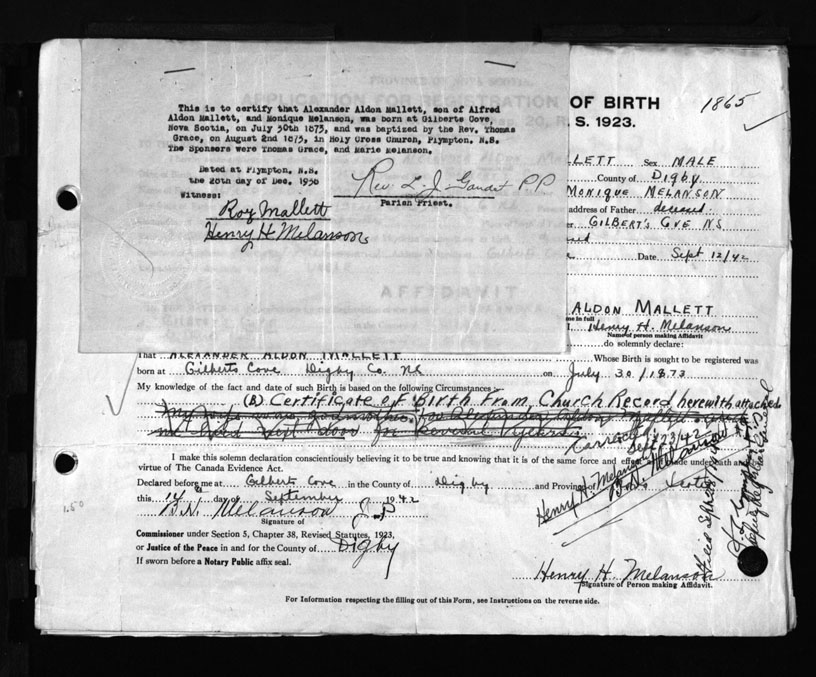 This is to certify that Alexander Aldon Mallett, son of Alfred
Aldon Mallett, and Monique Melanson, was born at Gilberts Cove,
Nova Scotia, on July 30th 1873, and was baptized by the Rev. Thomas
Grace, on August 2nd 1873, in Holy Cross Church, Plympton, N.S.
The Sponsors were Thomas Grace, and Marie Melanson.
Dated at Plympton, N.S.
the 20th day of Dec. 1936
Rev. L. J. P P
Parish Priest.
Witness:
Roy Mallett
Henry H. Melanson
OF BIRTH
1865
S. 1923.
LLETT Sex MALE
County of Digby
MONIQUE MELANSON
address of Father deceased
GILBERT'S COVE NS
Date Sept 12/42
AFFIDAVIT
ALDON MALLETT
me in full
I, Henry H. Melanson
Name of person making Affidavit
do solemnly declare:
That ALEXANDER ALDON MALLETT Whose Birth is sought to be registered was
born at Gilberts Cove Digby Co. NS on July 30/1873
My knowledge of the fact and date of such Birth is based on the following Circumstances:
(B) Certificate of Birth From Church Record herewith attached
I make this solemn declaration conscientiously believing it to be true and knowing that it is of the same force and effect made under oath and
virtue of The Canada Evidence Act.
Declared before me at Gilberts Cove in the County of Digby and Province of Nova Scotia
this 14 day of September 1942
B.N. Melanson J-P
Signature of
Commissioner under Section 5, Chapter 38, Revised Statutes, 1923,
or Justice of the Peace in and for the County of Digby
If sworn before a Notary Public affix seal.
Henry H. Melanson
B.N. Melanson
1.50
Henry H. Melanson
Signature of Person making Affidavit.
For Information respecting the filling out of this Form, see Instructions on the reverse side.